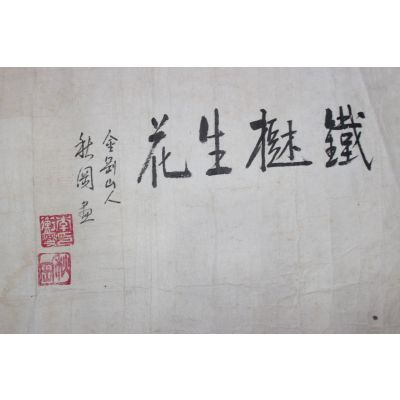 鐵橛生花
金剛山人
秋岡畫